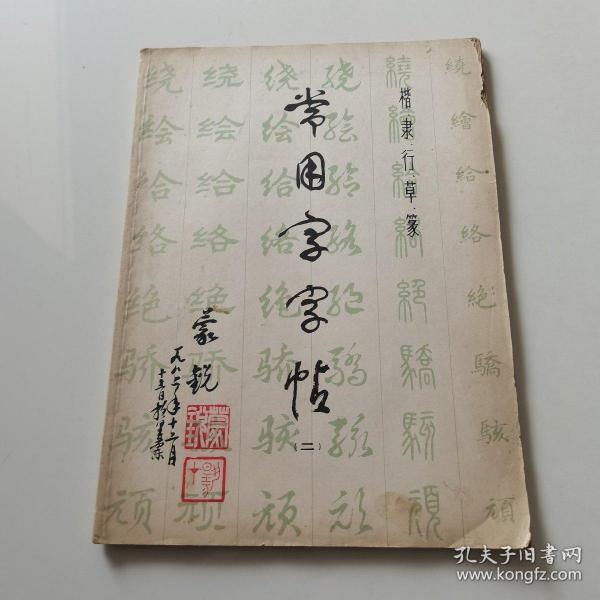 常用字字帖
(二)
楷·隶·行·草·篆
绕绘给络绝骄骇颃
绕绘给络绝骄骇颃
绕绘给络绝骄骇颃
绕绘给络绝骄骇颃
繞繪給絡絕驕駭頏
繞繪給絡絕驕駭頏
蒙锐
一九八六年十二月
孔夫子旧书网
www.kongfz.com